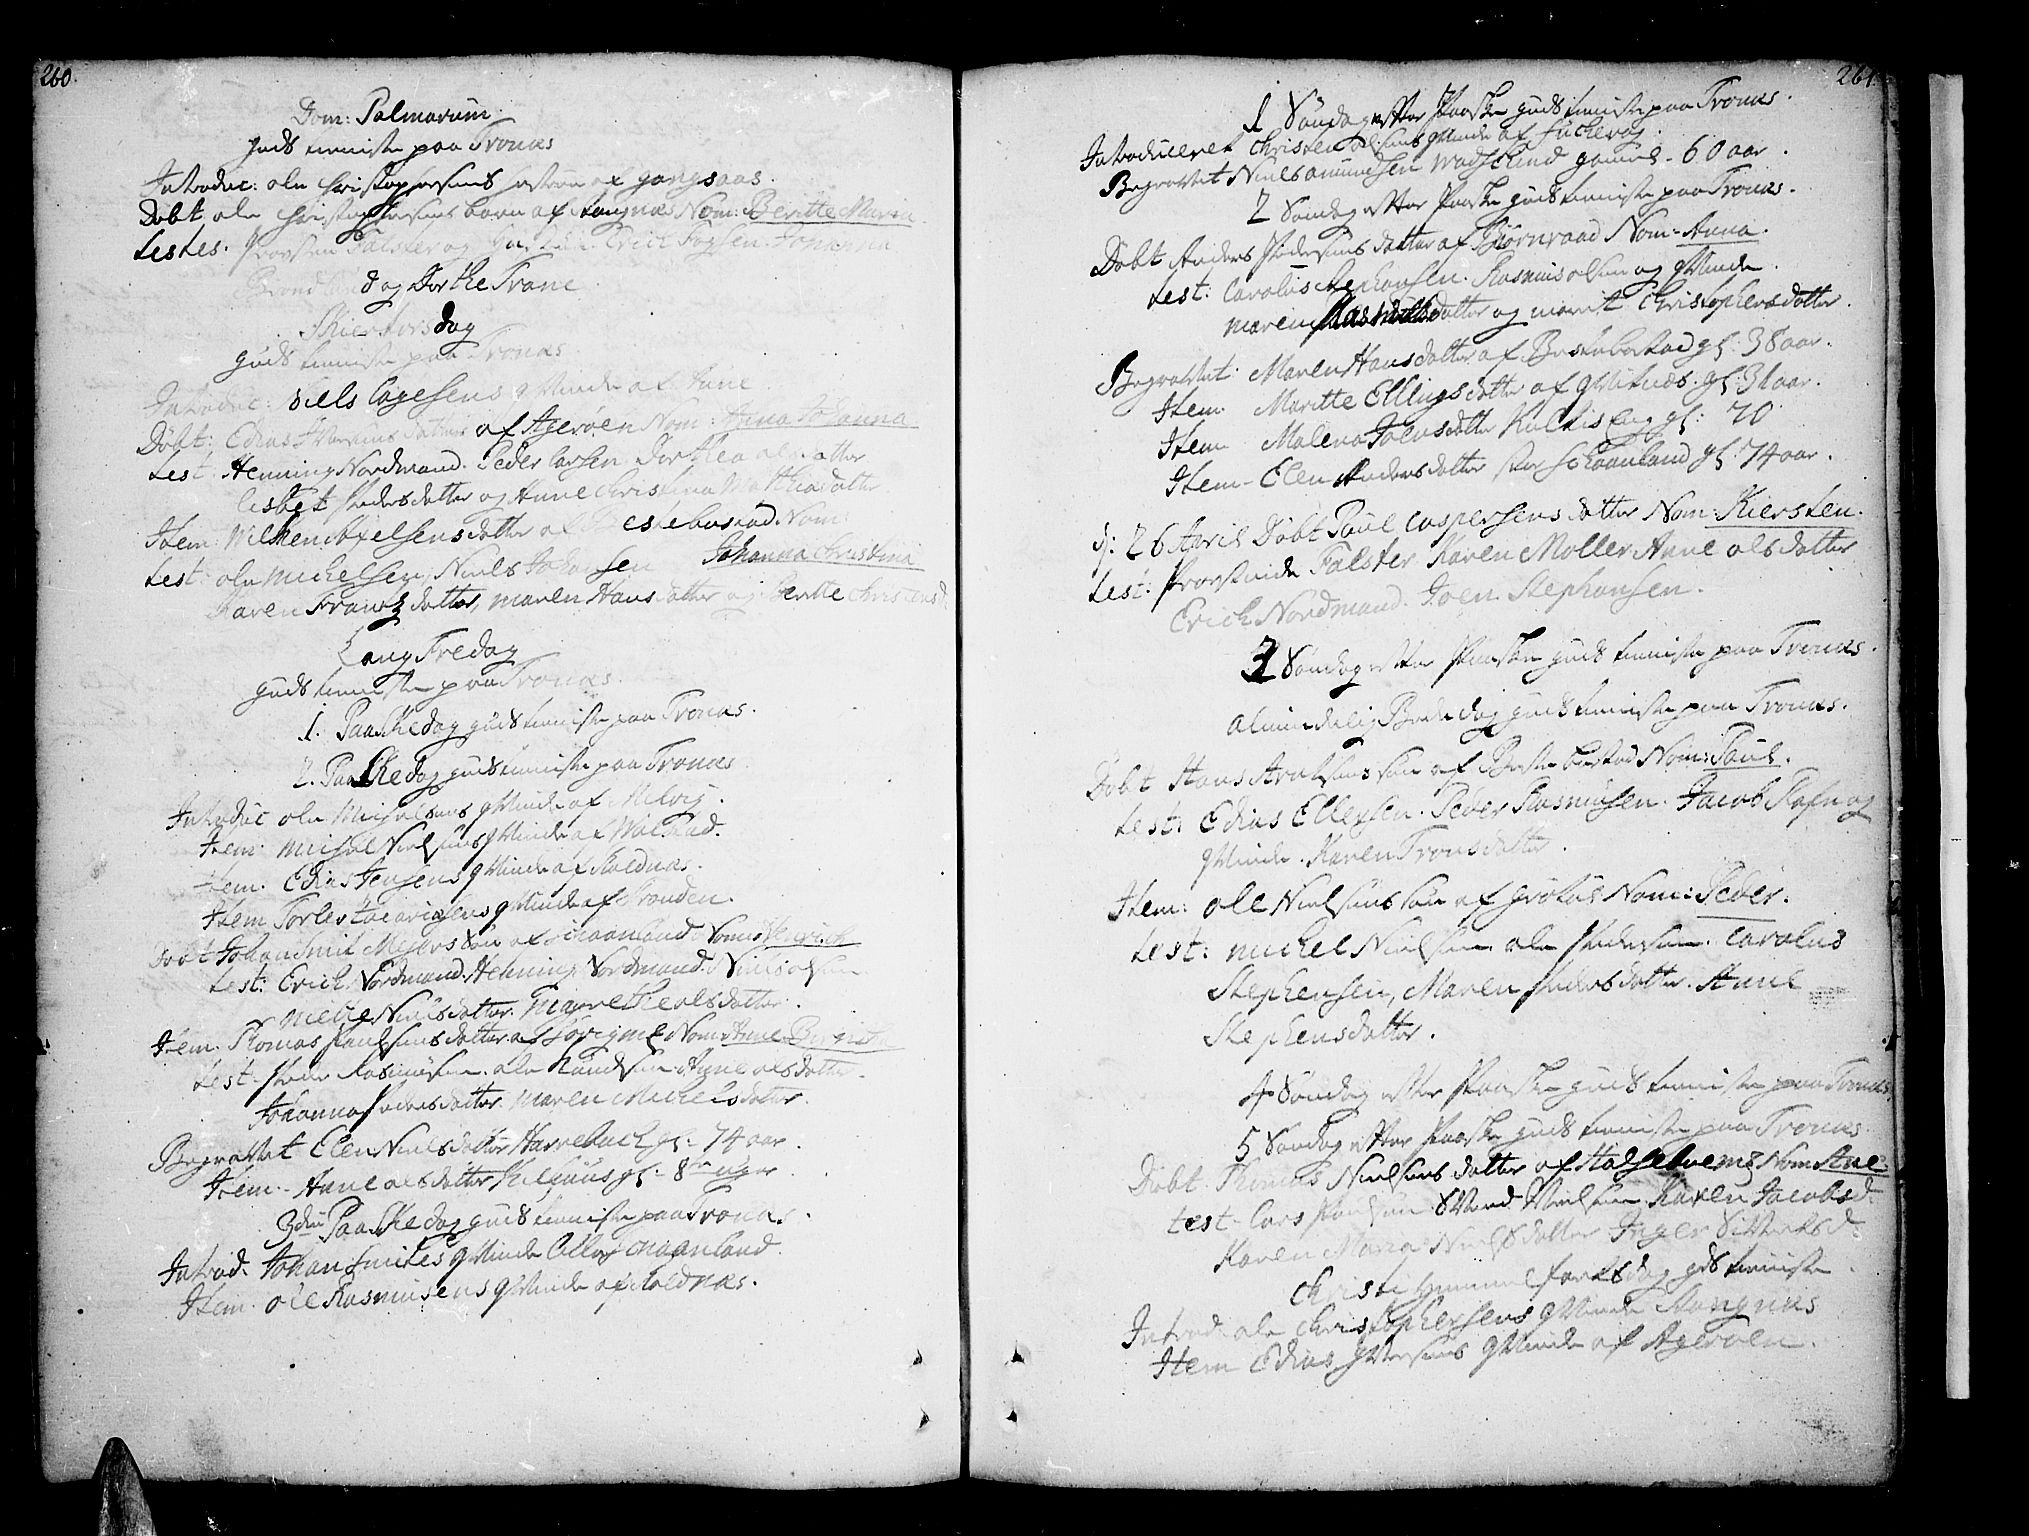 260.
Dom: Palmarum
guds tieniste paa Tronæs
Introduc: ole Christophersens hustrue af gangsaas.
Døbt ole Christophersens barn af Stangnæs Nom: Beritte Maria
testes. Provsten Falster og Erich Fogsen. Johanna
d og Dorthe Trane
Skiertorsdag
guds tieniste paa Tronæs
Introduc: Niels Cagesens qvinde af
Døbt: Edias Iversens datter af Agerøen Nom: Anna Johanna
test Henning Nordmand. Peder Larsen Dorthea olsdatter
Lisbet Pedersdatter og Anne Christina Mathiasdatter
Item: Wilken Axelsens datter af Bestebostad. Nom:
test: ole Michelsen, Niels Johansen Johanna Christina
Karen Frantzdatter, Maren Hansdatter og Beritte Christensd.
Lang Fredag
guds tieniste paa Tronæs.
1. Paaskedag guds tieniste paa Tronæs.
2. Paaskedag guds tieniste paa Tronæs
Introduc ole Michelsens qvinde af Melvig.
Item: Michel Nielsens qvinde af
Item. Edias Jensens qvinde af Koldnæs.
Item Torler Zacariasens qvinde af Tronden.
Døbt Johan Smit Meyers Søn af Schaanland Nom: Henrich
test: Erich Nordmand. Henning Nordmand. Niels olsen
Mette Nielsdatter. Margrethe olsdatter.
Item: Thomas Paulsens datter af Nom: Anne Birgita
test. Peder Rasmussen. ole Knudsen Anne olsdatter.
Johanna Pedersdatter. Maren Michelsdatter.
Begravet Elen Nielsdatter Harrebach gl: 74 aar.
Item. Anne olsdatter Kilhuus gl: 8te uger
3die Paaskedag guds tieniste paa Tronæs.
Introd. Johan Smites qvinde Schaanland.
Item. ole Rasmusens qvinde af Koldnæs.
261
1 Søndag efter Paaske guds tieniste paa Tronæs.
Introduceret Christen olsens qvinde af
Begravet Niels Amundsen Wadsund gamel - 60 aar.
2 Søndag efter Paaske guds tieniste paa Tronæs.
Døbt Anders Pedersens datter af Biørnraae Nom - Anna.
test: Carolus Stephansen. Rasmus olsen og qvinde.
Maren Rasmusdatter og Marit Christophersdatter.
Begravet: Maren Hansdatter af Bestebostad gl: 38 aar.
Item. Maritte Ellingsdatter af qvitnæs. gl: 31 aar.
Item Malena Joensdatter gl: 70
Item - Elen Andersdatter stor schaanland gl 74 aar.
d: 26 April Døbt Paul Caspersens datter Nom: Kiersten.
test: Provstinde Falster Karen Moller Anne olsdatter
Erich Nordmand. Joen Stephansen.
3 Søndag efter Paaske guds tieniste paa Tronæs.
almindelig Bededag guds tieniste paa Tronæs.
Døbt Hans Arntsens søn af Bestebostad Nom: Paul.
test: Edias Ellevsen. Peder Rasmussen. Jacob og
qvinde. Karen Tronsdatter.
Item: ole Nielsens søn af Grøtaa Nom: Peder.
test: Michel Nielsen. ole Pedersen. Carolus
Stephensen, Maren Pedersdatter. Anne
Stephensdatter.
4 Søndag efter Paaske guds tieniste paa Tronæs
5 Søndag efter Paaske guds tieniste paa Tronæs
Døbt. Thomas Nielsens datter af Nom Ane.
test - Lars Paulsen Sivend Nielsen Karen Jacobsd.
Karen Maria Nielsdatter Inger Sivertsd.
Christi himmelfartsdag gds tieniste.
Introd. ole Christophersens qvinde Stangnæs
Item Edias Iversens qvinde af Agerøen.